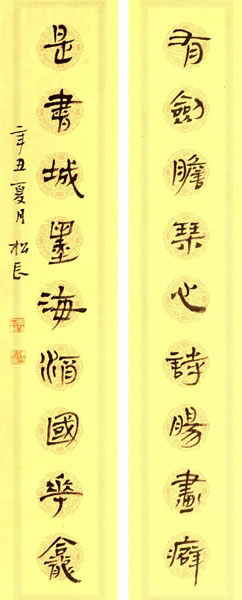 有劍膽琴心詩腸畫癖
是書城墨海酒國華龕
辛丑夏月松長